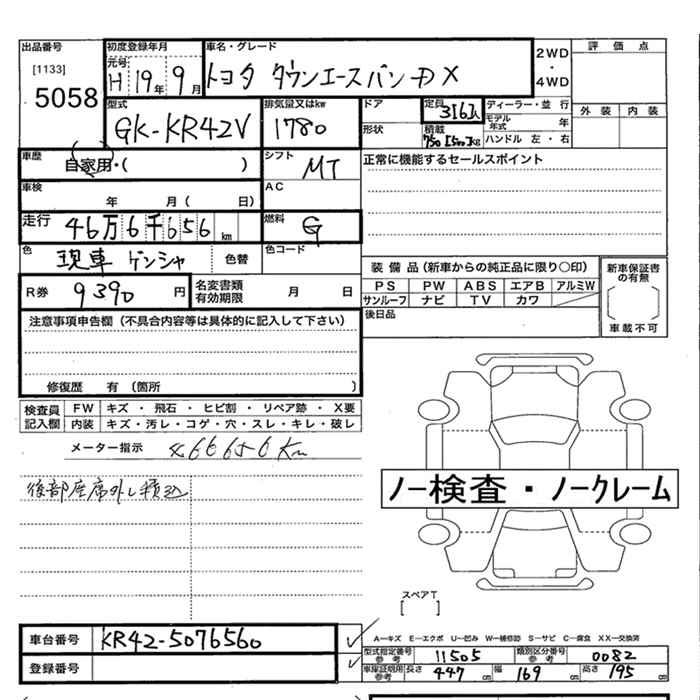 出品番号 [1133] 5058
初度登録年月 元号 H 19年 9月
車名・グレード トヨタ タウンエースバン DX
2WD・4WD
評価点
外装 内装
型式 GK-KR42V
排気量又はkw 1780
ドア
形状
定員 3|6人
積載 750|500kg
ディーラー・並行
モデル年式 年
ハンドル 左・右
車歴 自家用・( )
シフト MT
正常に機能するセールスポイント
車検 年 月( 日)
AC
走行 46万6千656km
燃料 G
色 現車 ゲンシャ 色替
色コード
装備品(新車からの純正品に限り○印)
PS PW ABS エアB アルミW
サンルーフ ナビ TV カワ
新車保証書の有無
車載不可
R券 9390円
名変書類有効期限 月 日
後日品
注意事項申告欄(不具合内容等は具体的に記入して下さい)
修復歴 有(箇所 )
検査員記入欄
FW キズ・飛石・ヒビ割・リペア跡・X要
内装 キズ・汚レ・コゲ・穴・スレ・キレ・破レ
メーター指示 466656Km
後部座席外し積込
ノー検査・ノークレーム
スペアT
[ ]
車台番号 KR42-5076560
登録番号
A―キズ E―エクボ U―凹み W―補修跡 S―サビ C―腐食 XX―交換済
型式指定番号参考 11505 類別区分番号参考 0082
車庫証明用参考 長さ 447cm 幅 169cm 高さ 195cm